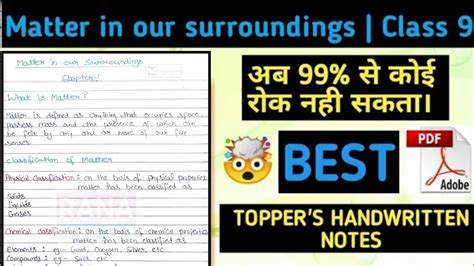 Matter in our surroundings | Class 9
Matter in our Surroundings
Chapter-1
What is Matter?
Matter is defined as anything that occupies space,
possess mass and the presence of which can
be felt by any one or more of our five
senses.
Classification of Matter
Physical Classification: on the basis of physical properties
matter has been classified as
Solids
Liquids
Gases
RANA
Chemical Classification: on the basis of chemical properties
matter has been classified as
Elements: eg- Gold, Oxygen, Silver, etc
Compounds: eg- Salt, etc
अब 99% से कोई
रोक नही सकता।
BEST
PDF
Adobe
TOPPER'S HANDWRITTEN
NOTES